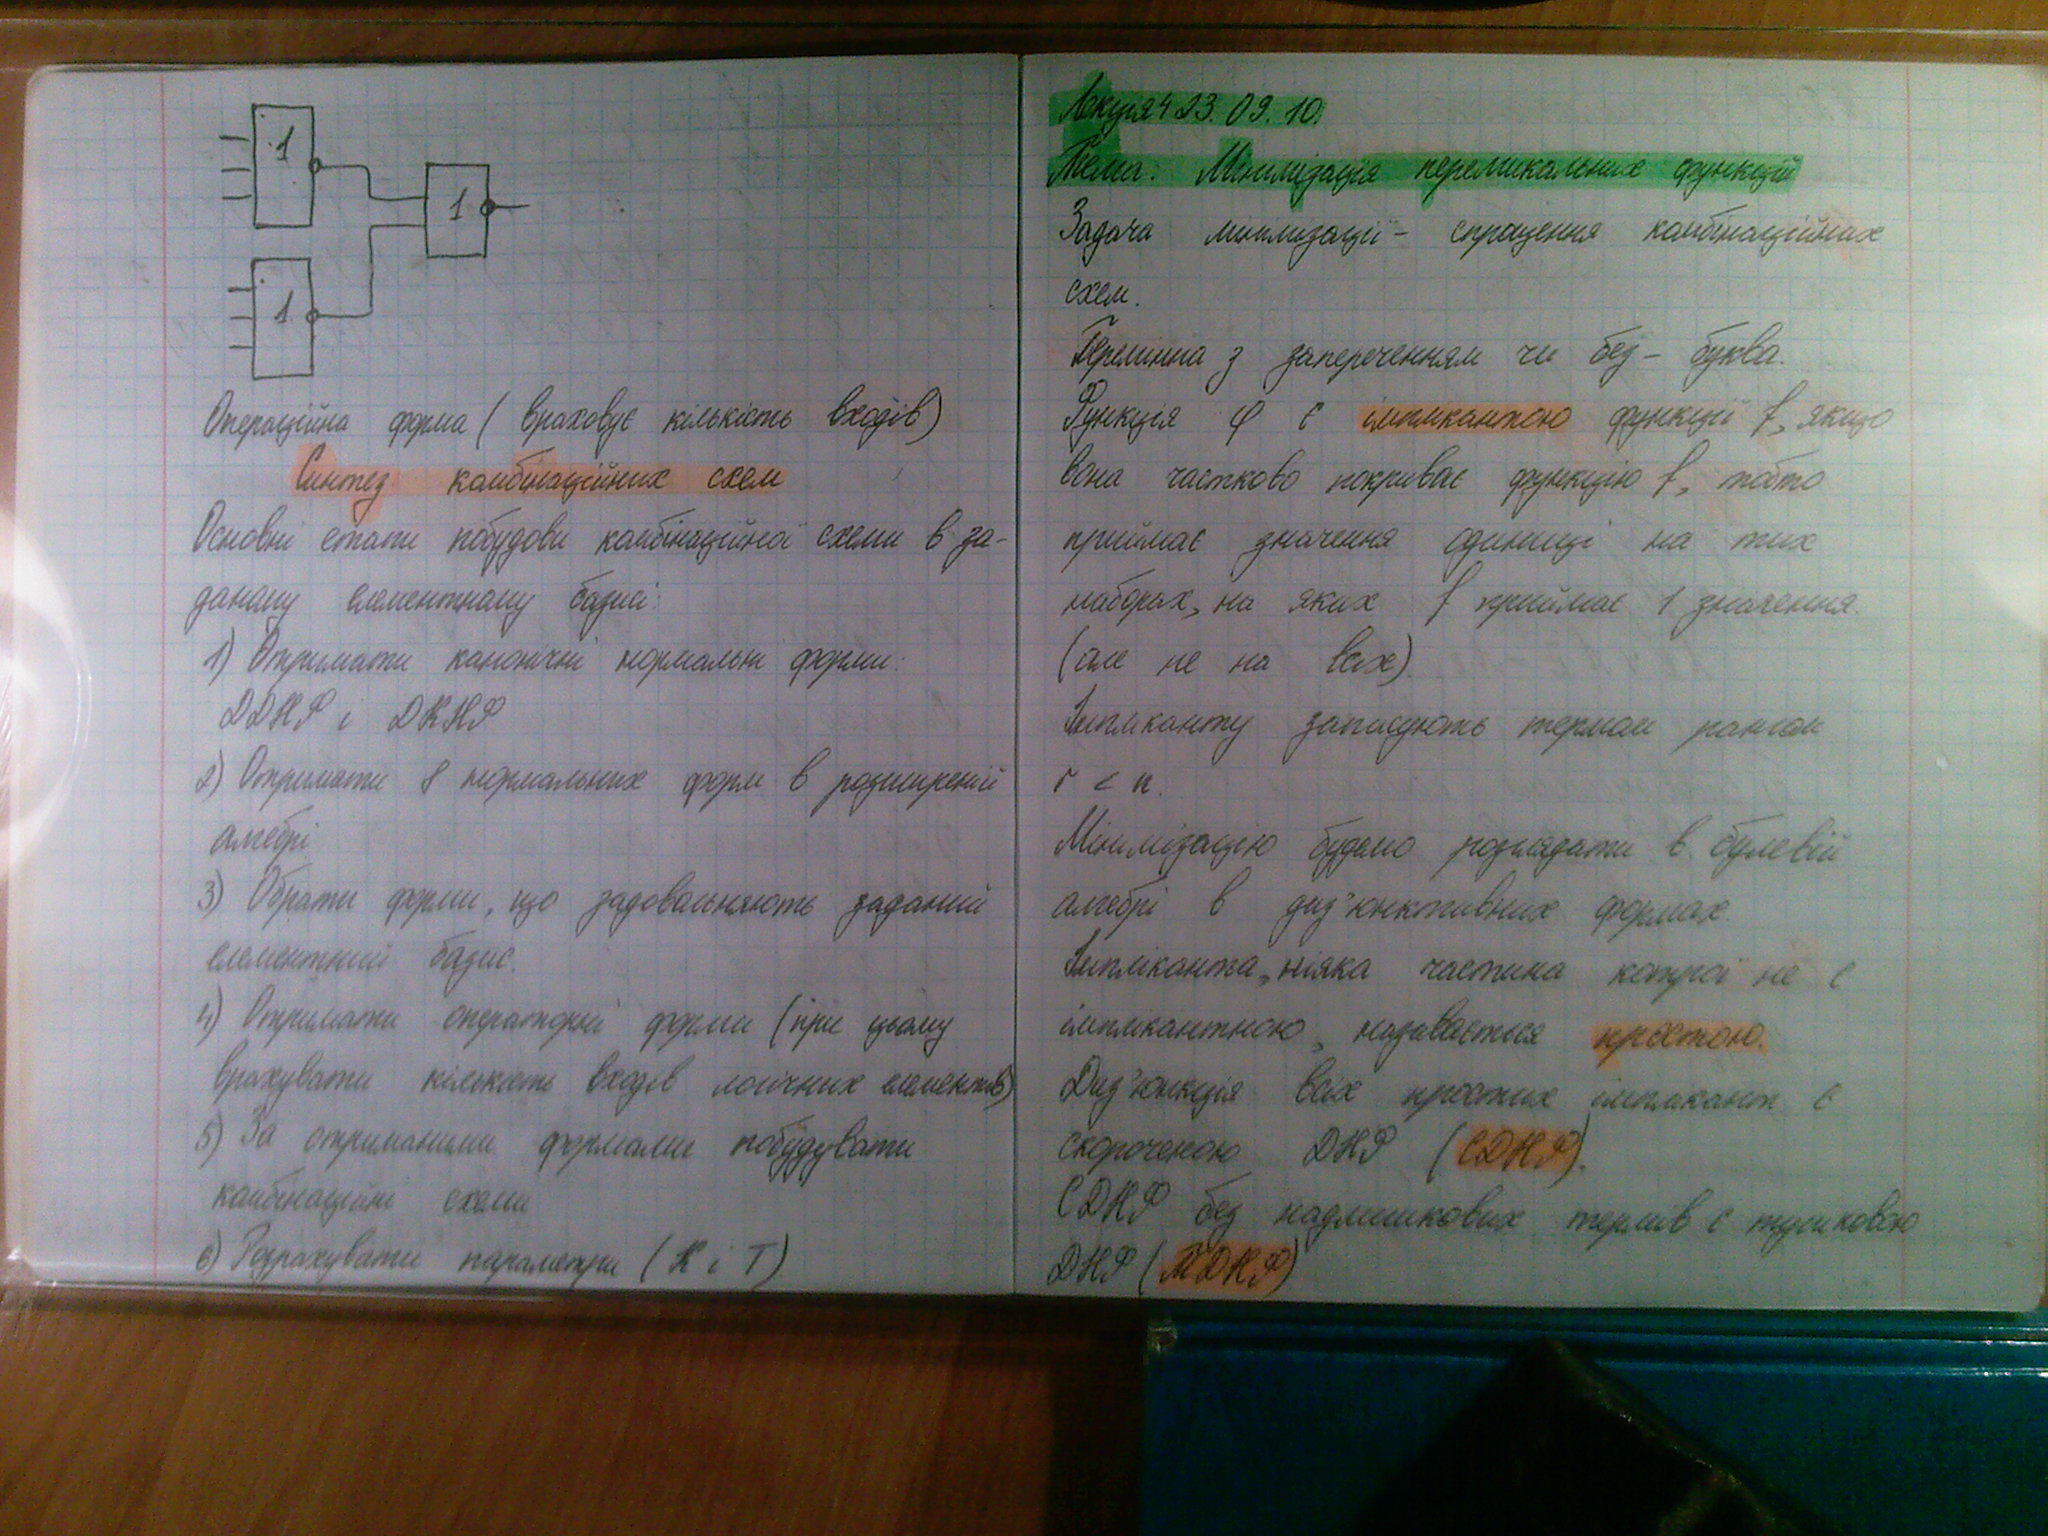 1
1
1
Операційна форма (враховує кількість входів)
Синтез комбінаційних схем
Основні етапи побудови комбінаційної схеми в за-
даному елементному базисі:
1) Отримати канонічні нормальні форми:
ДДНФ і ДКНФ
2) Отримати 8 нормальних форм в розширеній
алгебрі
3) Обрати форми, що задовольняють заданий
елементний базис.
4) Отримати операторні форми (при цьому
врахувати кількість входів логічних елементів)
5) За отриманими формами побудувати
комбінаційні схеми
6) Розрахувати параметри (К і Т)
Лекція 4 23.09.10.
Тема: Мінімізація перемикальних функцій
Задача мінімізації - спрощення комбінаційних
схем.
Перемінна з запереченням чи без - буква.
Функція φ є імплікантою функції f, якщо
вона частково покриває функцію f, тобто
приймає значення одиниці на тих
наборах, на яких f приймає 1 значення.
(але не на всіх).
Імпліканту записують термом рангом
r < n.
Мінімізацію будемо розглядати в булевій
алгебрі в диз'юнктивних формах.
Імпліканта, ніяка частина котрої не є
імплікантною, називається простою.
Диз'юнкція всіх простих імплікант є
скороченою ДНФ (СДНФ).
СДНФ без надлишкових термів є тупиковою
ДНФ (ТДНФ)